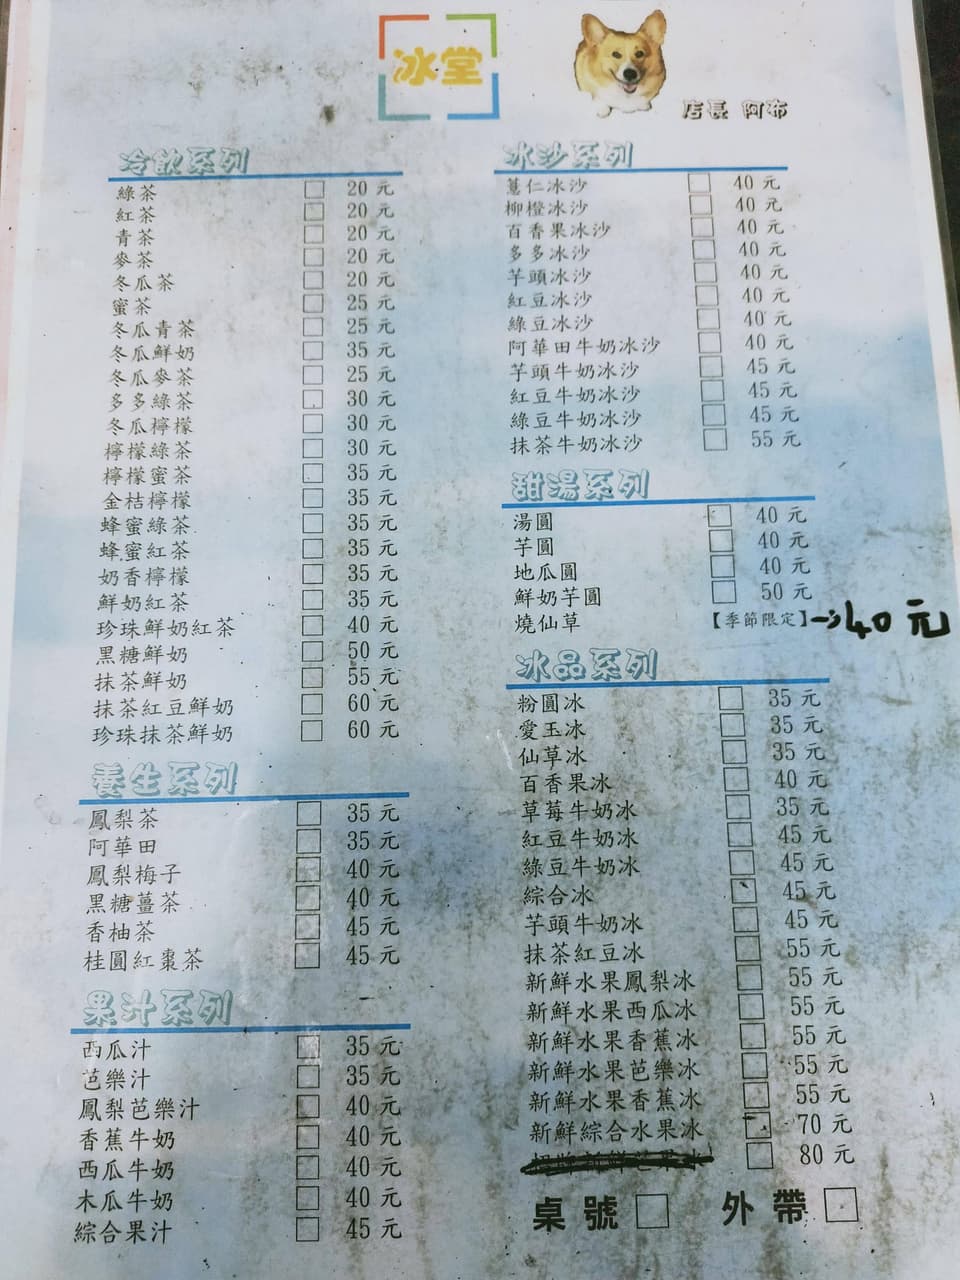 冰堂
店長 阿布
冷飲系列
綠茶 20 元
紅茶 20 元
青茶 20 元
麥茶 20 元
冬瓜茶 20 元
蜜茶 25 元
冬瓜青茶 25 元
冬瓜鮮奶 35 元
冬瓜麥茶 25 元
多多綠茶 30 元
冬瓜檸檬 30 元
檸檬綠茶 30 元
檸檬蜜茶 35 元
金桔檸檬 35 元
蜂蜜綠茶 35 元
蜂蜜紅茶 35 元
奶香檸檬 35 元
鮮奶紅茶 35 元
珍珠鮮奶紅茶 40 元
黑糖鮮奶 50 元
抹茶鮮奶 55 元
抹茶紅豆鮮奶 60 元
珍珠抹茶鮮奶 60 元
養生系列
鳳梨茶 35 元
阿華田 35 元
鳳梨梅子 40 元
黑糖薑茶 40 元
香柚茶 45 元
桂圓紅棗茶 45 元
果汁系列
西瓜汁 35 元
芭樂汁 35 元
鳳梨芭樂汁 40 元
香蕉牛奶 40 元
西瓜牛奶 40 元
木瓜牛奶 40 元
綜合果汁 45 元
冰沙系列
薏仁冰沙 40 元
柳橙冰沙 40 元
百香果冰沙 40 元
多多冰沙 40 元
芋頭冰沙 40 元
紅豆冰沙 40 元
綠豆冰沙 40 元
阿華田牛奶冰沙 40 元
芋頭牛奶冰沙 45 元
紅豆牛奶冰沙 45 元
綠豆牛奶冰沙 45 元
抹茶牛奶冰沙 55 元
甜湯系列
湯圓 40 元
芋圓 40 元
地瓜圓 40 元
鮮奶芋圓 50 元
燒仙草 【季節限定】→40 元
冰品系列
粉圓冰 35 元
愛玉冰 35 元
仙草冰 35 元
百香果冰 40 元
草莓牛奶冰 35 元
紅豆牛奶冰 45 元
綠豆牛奶冰 45 元
綜合冰 45 元
芋頭牛奶冰 45 元
抹茶紅豆冰 55 元
新鮮水果鳳梨冰 55 元
新鮮水果西瓜冰 55 元
新鮮水果香蕉冰 55 元
新鮮水果芭樂冰 55 元
新鮮水果香蕉冰 55 元
新鮮綜合水果冰 70 元
80 元
桌號 外帶